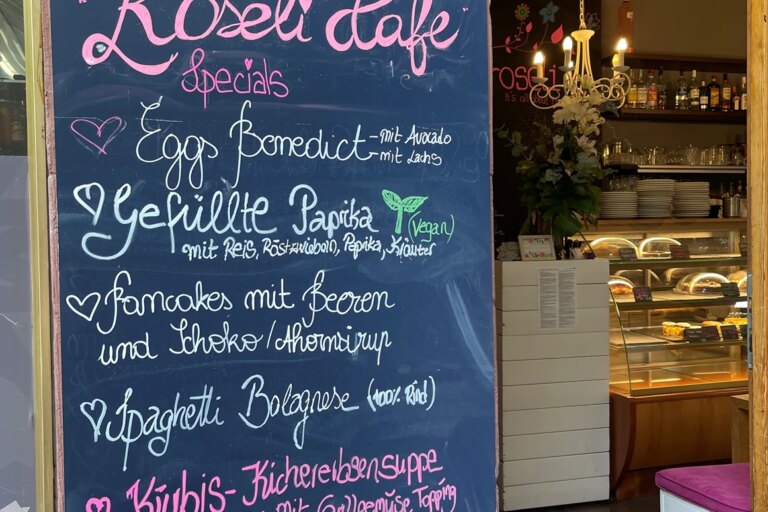 "Roseli Cafe"
Specials
Eggs Benedict - mit Avocado
- mit Lachs
Gefüllte Paprika (vegan)
mit Reis, Röstzwiebeln, Paprika, Kräuter
Pancakes mit Beeren
und Schoko/Ahornsirup
Spaghetti Bolognese (100% Rind)
Kürbis-Kichererbsensuppe
mit Grillgemüse Topping
rosel
it's all